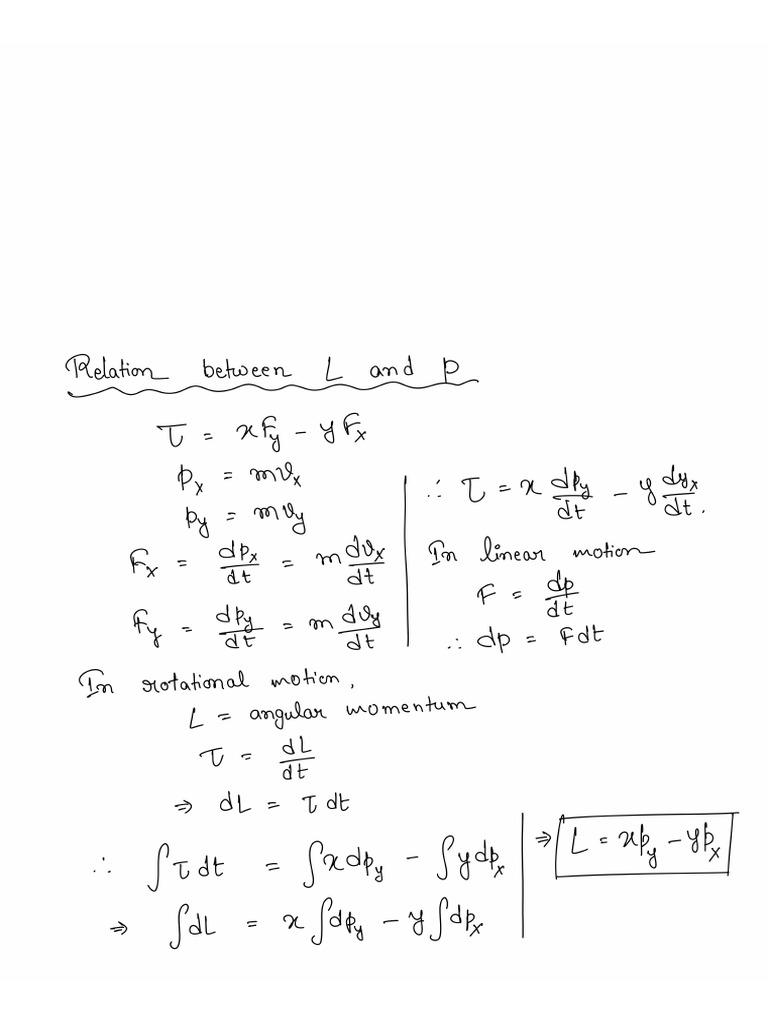 Relation between L and p
τ = xF_y - yF_x
p_x = mv_x
p_y = mv_y
F_x = dp_x/dt = m dv_x/dt
F_y = dp_y/dt = m dv_y/dt
∴ τ = x dp_y/dt - y dy_x/dt.
In linear motion
F = dp/dt
∴ dp = Fdt
In rotational motion,
L = angular momentum
τ = dL/dt
⇒ dL = τ dt
∴ ∫τ dt = ∫x dp_y - ∫y dp_x
⇒ ∫dL = x∫dp_y - y∫dp_x
⇒ L = xp_y - yp_x